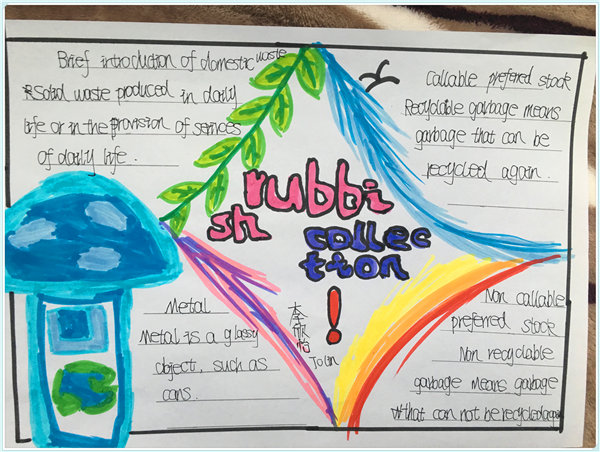 Brief introduction of domestic waste
Solid waste produced in daily
life or in the provision of services
of daily life.
Callable preferred stock
Recyclable garbage means
garbage that can be
recycled again.
rubbi
sh
collec
tion
!
Metal
Metal is a glassy
object, such as
cans.
李欣怡
Non callable
preferred stock
Non recyclable
garbage means garbage
that can not be recycled again